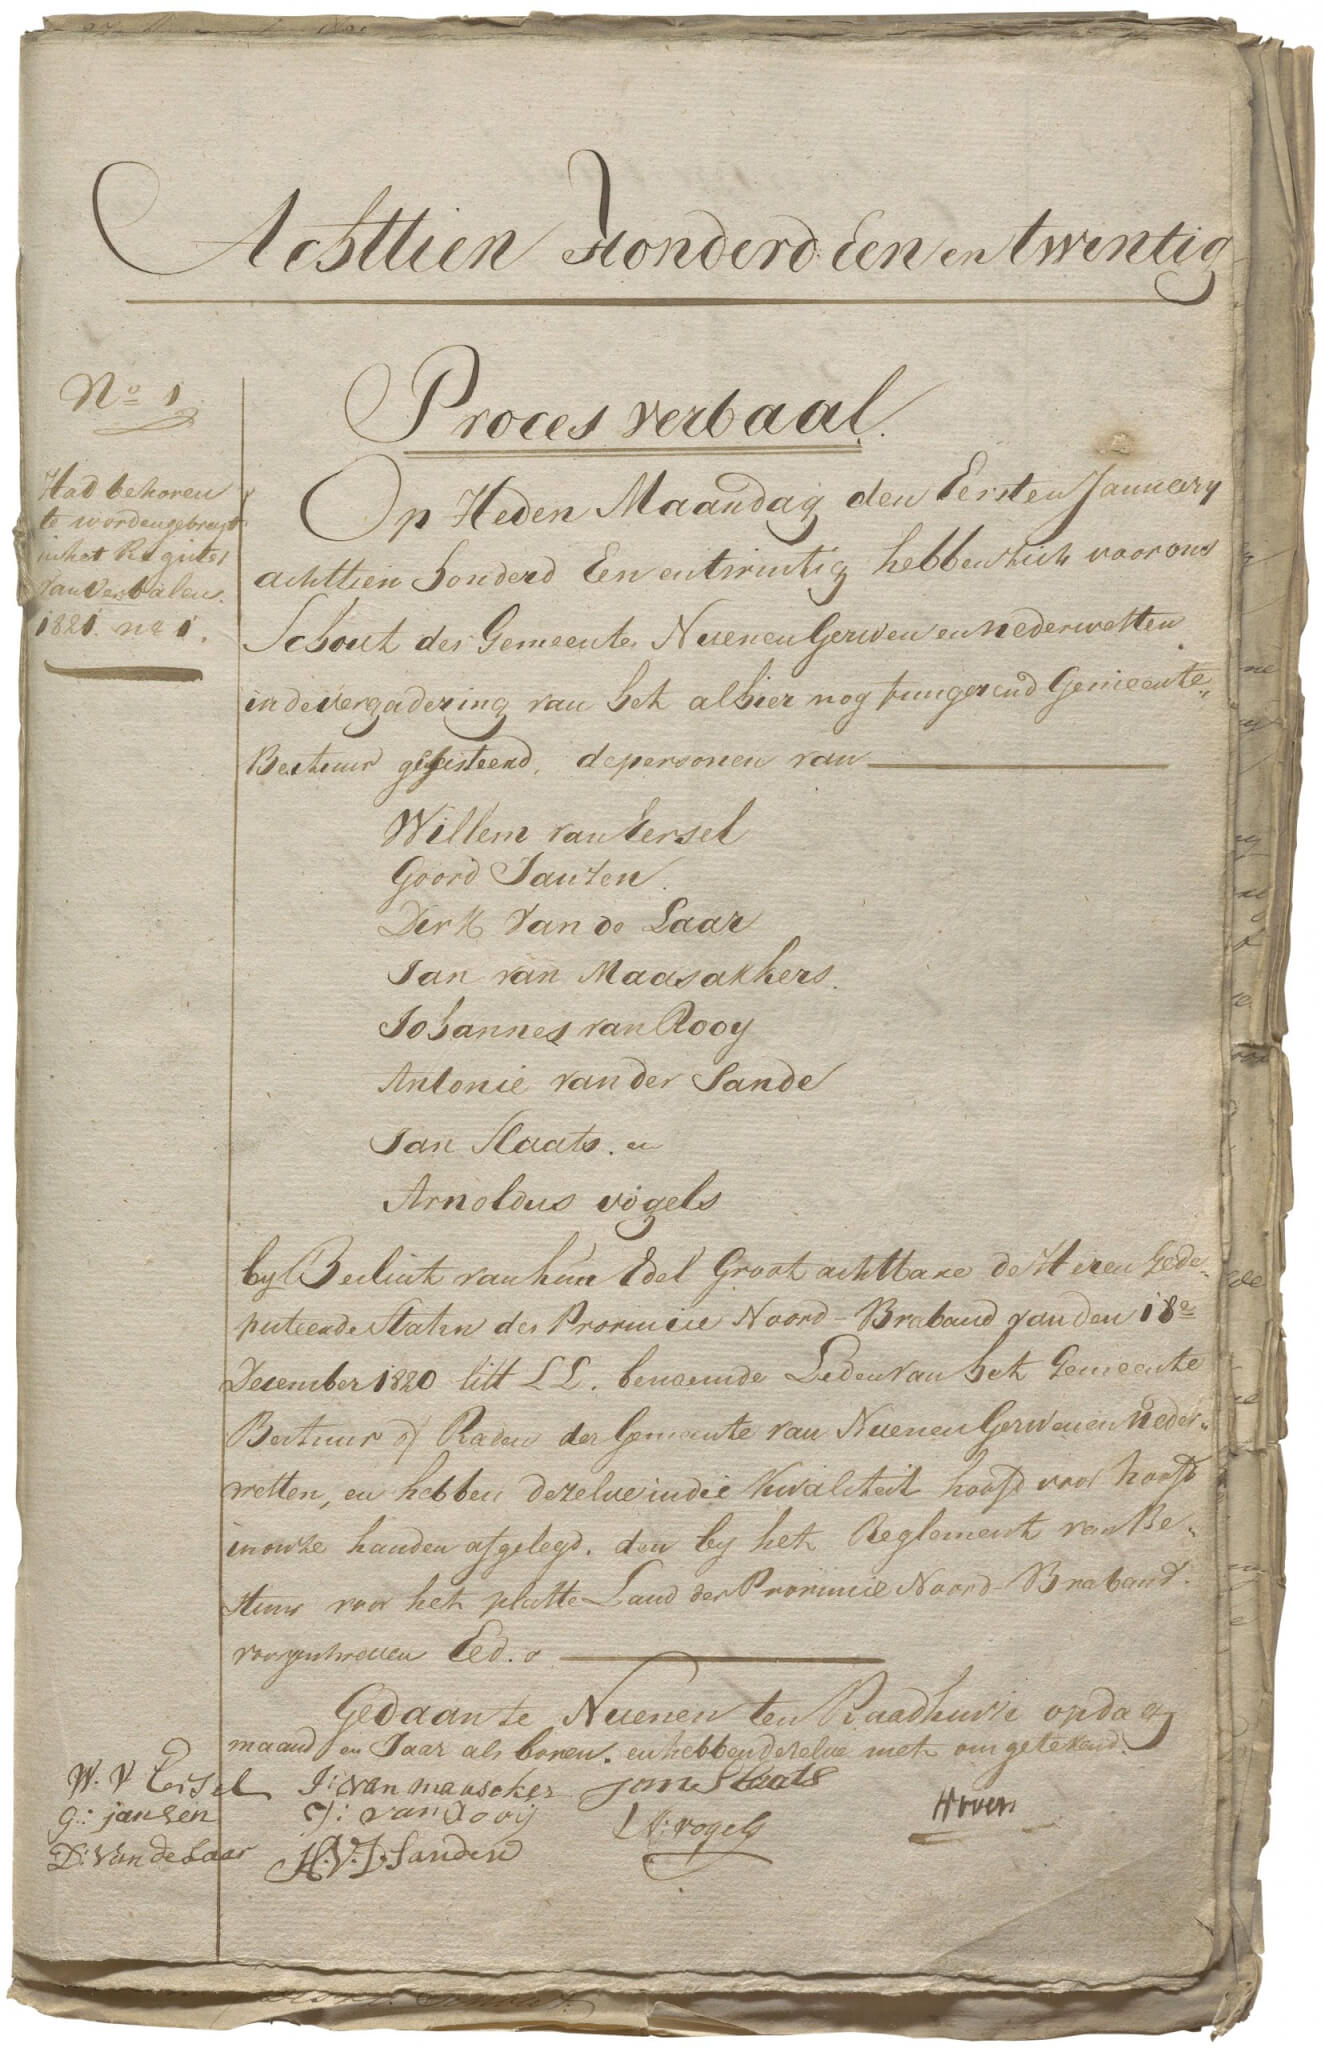 Achttien Honderd Een en twintig
No 1
Proces verbaal.
Had behoren
te worden gebragt
in het Register
van verbalen
1821. no 1.
Op Heden Maandag den Eersten January
achttien honderd Een en twintig hebben zich voor ons
Schout der Gemeente Nuenen Gerwen en nederwetten
in de vergadering van het alhier nog fungerend Gemeente„
Bestuur gesisteerd, de personen van
Willem van Eersel
Goord Janzen.
Dirk van de Laar
Jan van Maasakkers.
Johannes van Rooy
Antonie van der Sande
Jan Staats. en
Arnoldus vogels
by Besluit van hun Edel Groot achtbare de Heren Gede„
puteerde Staten der Provincie Noord-Braband van den 18e
December 1820 litt L L. benoemde Leden van het Gemeente
Bestuur of Raden der Gemeente van Nuenen Gerwen en neder„
wetten, en hebben dezelve in die kwaliteit hoofd voor hoofd
in onze handen afgelegd. den by het Reglement van Be„
stuur voor het platte Land der Provincie Noord-Braband.
voorgeschreven Eed.
Gedaan te Nuenen ten Raadhuize op dag
maand en Jaar als boven. en hebben dezelve met ons getekend.
W: V Eersel J: van maasakers jan Staats
G: jansen J: van rooij A: vogels Hoven
D: van de Laar A. V. D. Sanden